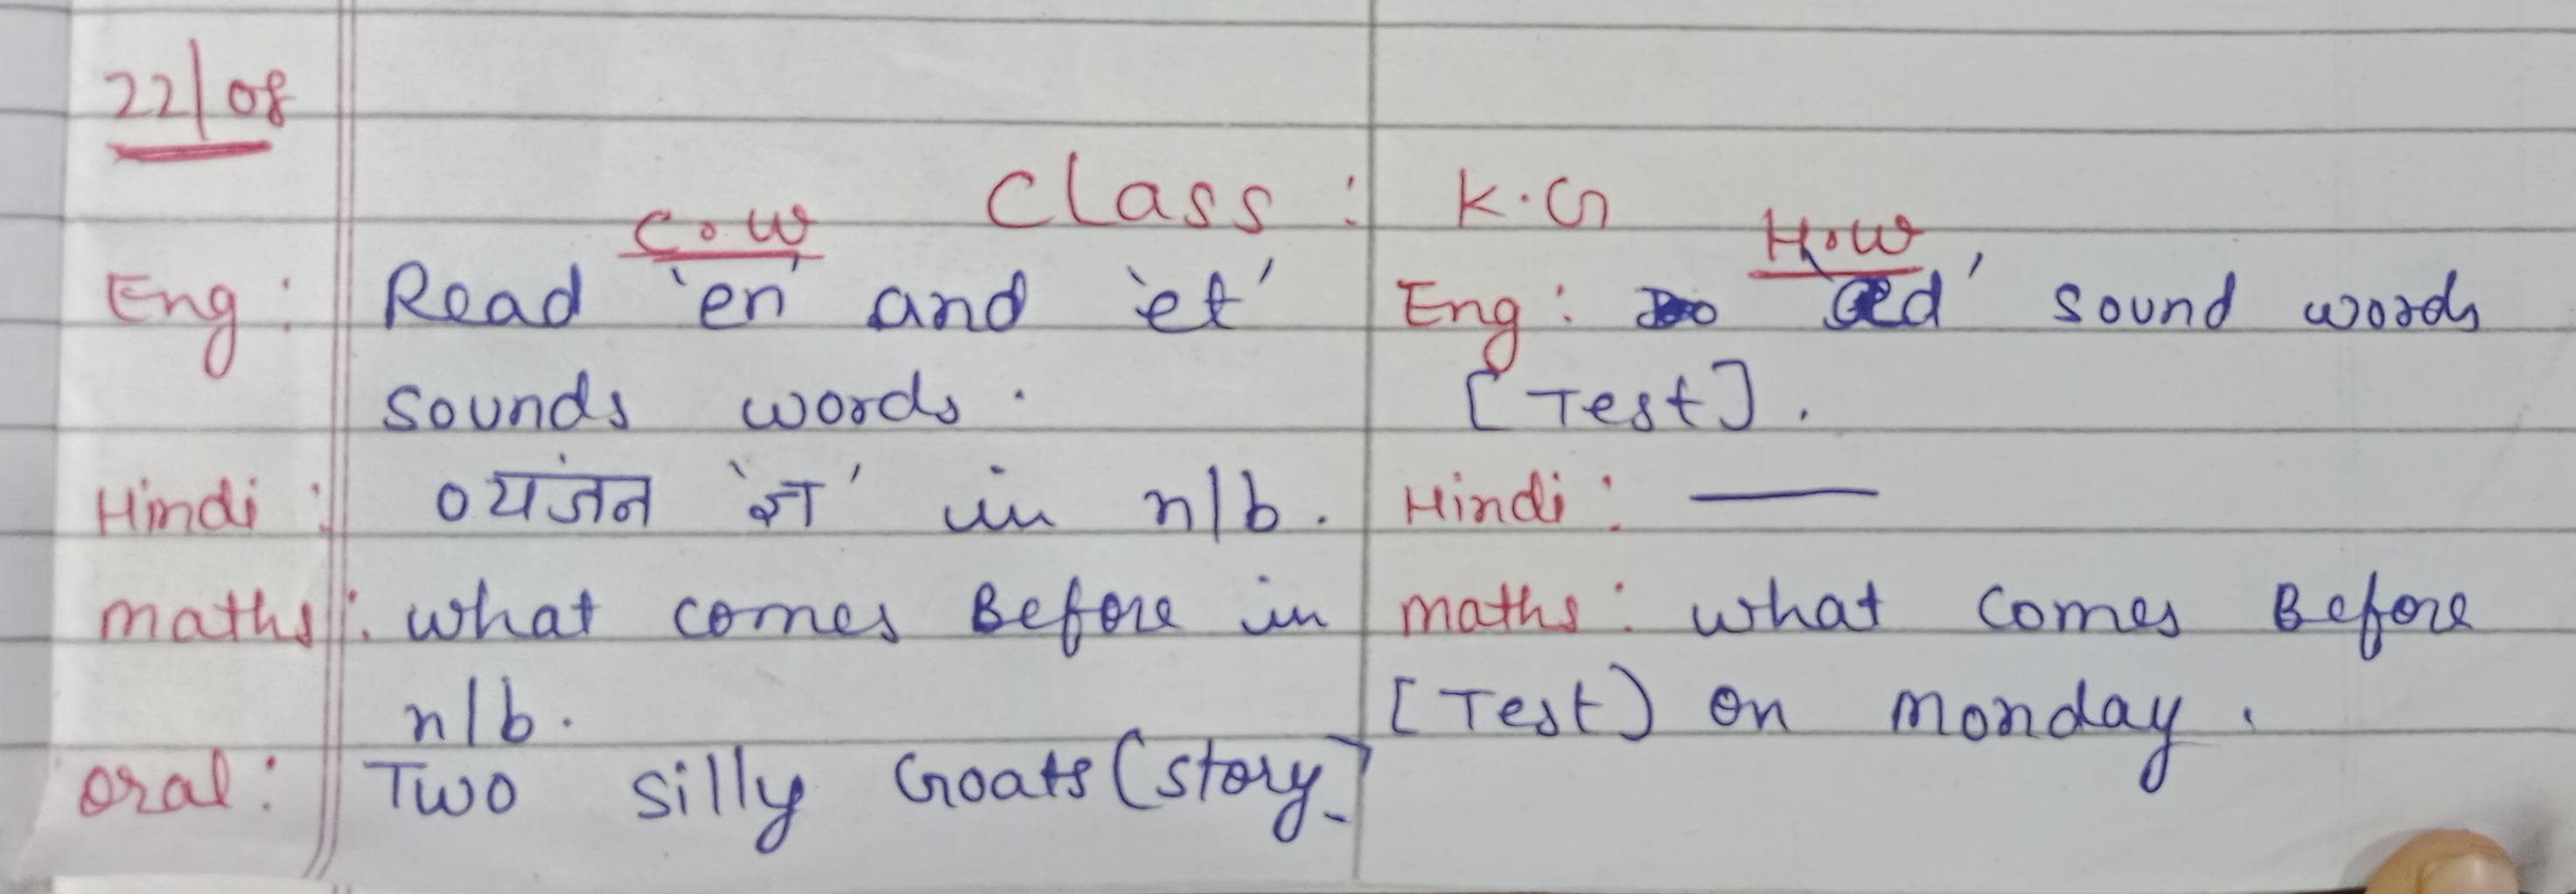 22/08
Class : K.G
C.W
Eng : Read 'en' and 'et'
sounds words.
Hindi : व्यंजन 'ज्ञ' in n/b.
maths : what comes Before in
n/b.
oral : Two silly Goats (story)
H.W
Eng : 'ed' sound words
[Test].
Hindi : —
maths : what comes Before
[Test] on monday.